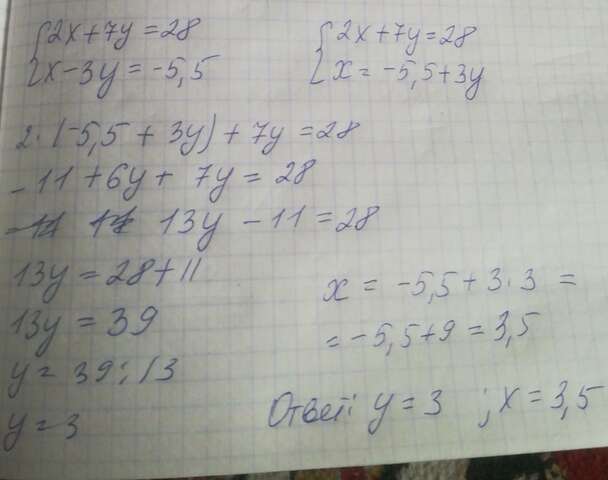 2x+7y=28
x-3y=-5,5
2x+7y=28
x=-5,5+3y
2·(-5,5+3y)+7y=28
-11+6y+7y=28
13y-11=28
13y=28+11
13y=39
y=39:13
y=3
x=-5,5+3·3=
=-5,5+9=3,5
Ответ: y=3 ; x=3,5